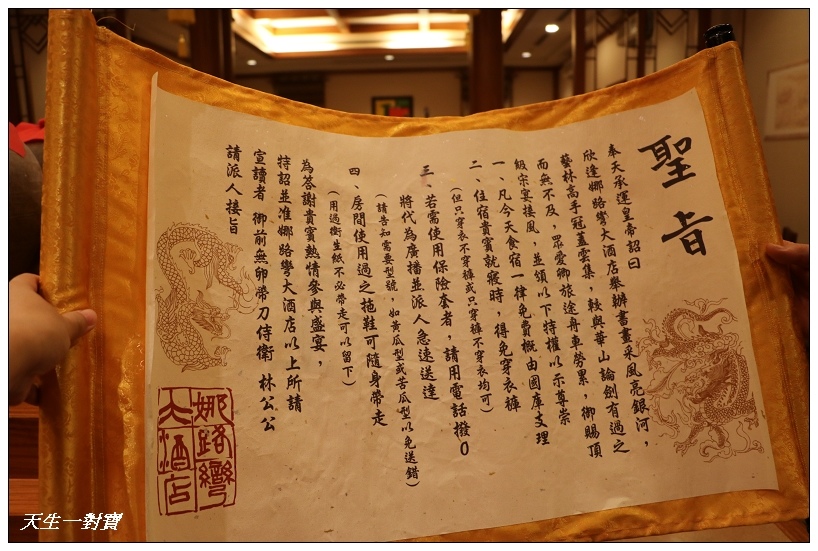 聖旨
奉天承運皇帝詔曰
欣逢娜路彎大酒店舉辦書畫采風亮銀河，
藝林高手冠蓋雲集，較與華山論劍有過之
而無不及，眾愛卿旅途舟車勞累，御賜頂
級宗宴接風，並頒以下特權以示尊崇
一、凡今天食宿一律免費概由國庫支理
二、住宿貴賓就寢時，得免穿衣褲
(但只穿衣不穿褲或只穿褲不穿衣均可)
三、若需使用保險套者，請用電話撥0
將代為廣播並派人急速送達
(請告知需要型號，如黃瓜型或苦瓜型以免送錯)
四、房間使用過之拖鞋可隨身帶走
(用過衛生紙不必帶走可以留下)
為答謝貴賓熱情參與盛宴，
特詔並准娜路彎大酒店以上所請
宣讀者 御前無卵帶刀侍衛 林公公
請派人接旨
娜路彎
大酒店
天生一對寶